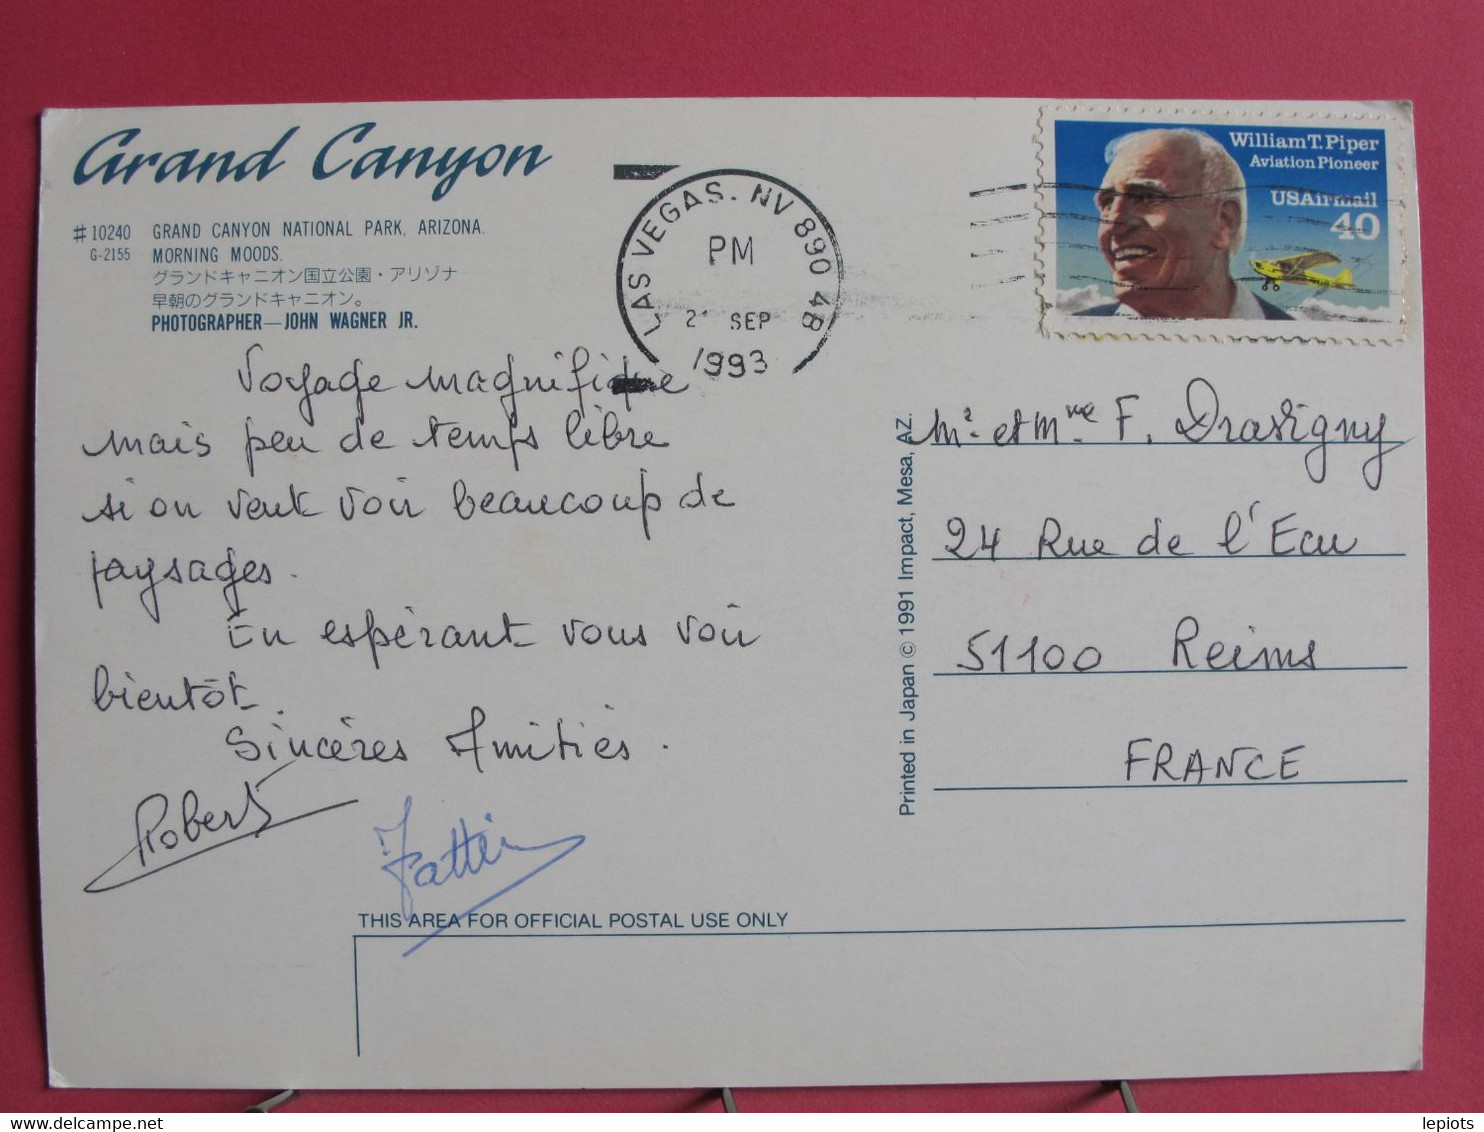 Grand Canyon
#10240 GRAND CANYON NATIONAL PARK, ARIZONA.
G-2155 MORNING MOODS.
グランドキャニオン国立公園・アリゾナ
早朝のグランドキャニオン。
PHOTOGRAPHER—JOHN WAGNER JR.
LAS VEGAS, NV 890 4B
PM
SEP
1993
William T. Piper
Aviation Pioneer
USAirmail
40
Voyage magnifique
mais peu de temps libre
si on veut voir beaucoup de
paysages.
En espérant vous voir
bientôt.
Sincères Amitiés.
Robert
Printed in Japan © 1991 Impact, Mesa, AZ.
Mr. et Mme F. Drasigny
24 Rue de l'Ecu
51100 Reims
FRANCE
THIS AREA FOR OFFICIAL POSTAL USE ONLY
lepiots